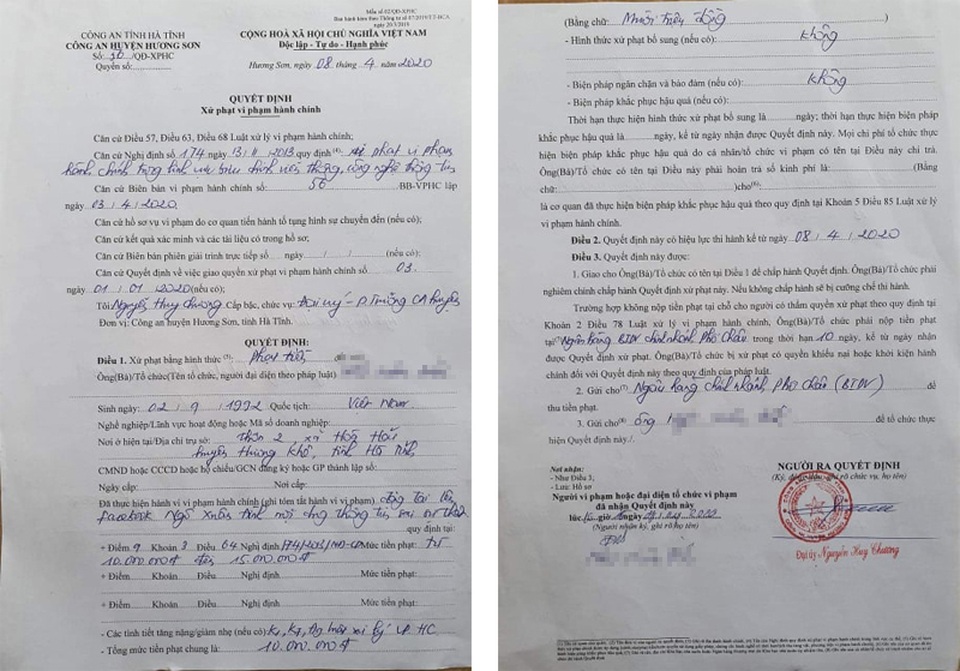 Mẫu số 02/QĐ-XPHC
Ban hành kèm theo Thông tư số 07/2019/TT-BCA
ngày 20/3/2019
CÔNG AN TỈNH HÀ TĨNH
CÔNG AN HUYỆN HƯƠNG SƠN
CỘNG HOÀ XÃ HỘI CHỦ NGHĨA VIỆT NAM
Độc lập - Tự do - Hạnh phúc
Số: 36 /QĐ-XPHC
Quyển số:
Hương Sơn, ngày 08 tháng 4 năm 2020
QUYẾT ĐỊNH
Xử phạt vi phạm hành chính
Căn cứ Điều 57, Điều 63, Điều 68 Luật xử lý vi phạm hành chính;
Căn cứ Nghị định số 174 ngày 13/11/2013 quy định xử phạt vi phạm
hành chính trong lĩnh vực bưu chính viễn thông, công nghệ thông tin
Căn cứ Biên bản vi phạm hành chính số: 56 /BB-VPHC lập
ngày 03/4/2020
Căn cứ hồ sơ vụ vi phạm do cơ quan tiến hành tố tụng hình sự chuyển đến (nếu có);
Căn cứ kết quả xác minh và các tài liệu có trong hồ sơ;
Căn cứ Biên bản phiên giải trình trực tiếp số ngày / / (nếu có);
Căn cứ Quyết định về việc giao quyền xử phạt vi phạm hành chính số 03
ngày 01/01/2020 (nếu có);
Tôi Nguyễn Huy Chương Cấp bậc, chức vụ: Đại uý - P. Trưởng CA huyện
Đơn vị: Công an huyện Hương Sơn, tỉnh Hà Tĩnh.
QUYẾT ĐỊNH:
Điều 1. Xử phạt bằng hình thức Phạt tiền
Ông(Bà)/Tổ chức(Tên tổ chức, người đại diện theo pháp luật)
Sinh ngày: 02/9/1992 Quốc tịch: Việt Nam
Nghề nghiệp/Lĩnh vực hoạt động hoặc Mã số doanh nghiệp:
Nơi ở hiện tại/Địa chỉ trụ sở: Thôn 2, xã Hoà Hải
huyện Hương Khê, tỉnh Hà Tĩnh
CMND hoặc CCCD hoặc hộ chiếu/GCN đăng ký hoặc GP thành lập số:
Ngày cấp: Nơi cấp:
Đã thực hiện hành vi vi phạm hành chính (ghi tóm tắt hành vi vi phạm) đăng tải lên
facebook Ngô Xuân tình nội dung thông tin sai sự thật
quy định tại:
+ Điểm g Khoản 3 Điều 64 Nghị định 174/2013/NĐ-CP Mức tiền phạt: từ
10.000.000đ đến 15.000.000đ
+ Điểm Khoản Điều Nghị định Mức tiền phạt:
+ Điểm Khoản Điều Nghị định Mức tiền phạt:
- Các tình tiết tăng nặng/giảm nhẹ (nếu có)
- Tổng mức tiền phạt chung là: 10.000.000đ
(Bằng chữ: Mười triệu đồng)
- Hình thức xử phạt bổ sung (nếu có): không
- Biện pháp ngăn chặn và bảo đảm (nếu có): không
- Biện pháp khắc phục hậu quả (nếu có):
Thời hạn thực hiện hình thức xử phạt bổ sung là ngày; thời hạn thực hiện biện pháp
khắc phục hậu quả là ngày, kể từ ngày nhận được Quyết định này. Mọi chi phí tổ chức thực
hiện biện pháp khắc phục hậu quả do cá nhân/tổ chức vi phạm có tên tại Điều này chi trả.
Ông(Bà)/Tổ chức có tên tại Điều này phải hoàn trả số kinh phí là: (Bằng
chữ: )cho(6):
là cơ quan đã thực hiện biện pháp khắc phục hậu quả theo quy định tại Khoản 5 Điều 85 Luật xử lý
vi phạm hành chính.
Điều 2. Quyết định này có hiệu lực thi hành kể từ ngày 08/4/2020
Điều 3. Quyết định này được:
1. Giao cho Ông(Bà)/Tổ chức có tên tại Điều 1 để chấp hành Quyết định. Ông(Bà)/Tổ chức phải
nghiêm chỉnh chấp hành Quyết định xử phạt này. Nếu không chấp hành sẽ bị cưỡng chế thi hành.
Trường hợp không nộp tiền phạt tại chỗ cho người có thẩm quyền xử phạt theo quy định tại
Khoản 2 Điều 78 Luật xử lý vi phạm hành chính, Ông(Bà)/Tổ chức phải nộp tiền phạt
tại Ngân hàng BIDV chi nhánh Phố Châu trong thời hạn 10 ngày, kể từ ngày nhận
được Quyết định xử phạt. Ông(Bà)/Tổ chức bị xử phạt có quyền khiếu nại hoặc khởi kiện hành
chính đối với Quyết định này theo quy định của pháp luật.
2. Gửi cho(7) Ngân hàng chi nhánh Phố Châu (BIDV) để
thu tiền phạt.
3. Gửi cho(8) ông để tổ chức thực
hiện Quyết định này./.
Nơi nhận:
- Như Điều 3;
- Lưu: Hồ sơ
Người vi phạm hoặc đại diện tổ chức vi phạm
đã nhận Quyết định này
(Người nhận ký, ghi rõ họ tên)
NGƯỜI RA QUYẾT ĐỊNH
(Ký, ghi rõ chức vụ, họ tên)
Đại úy Nguyễn Huy Chương